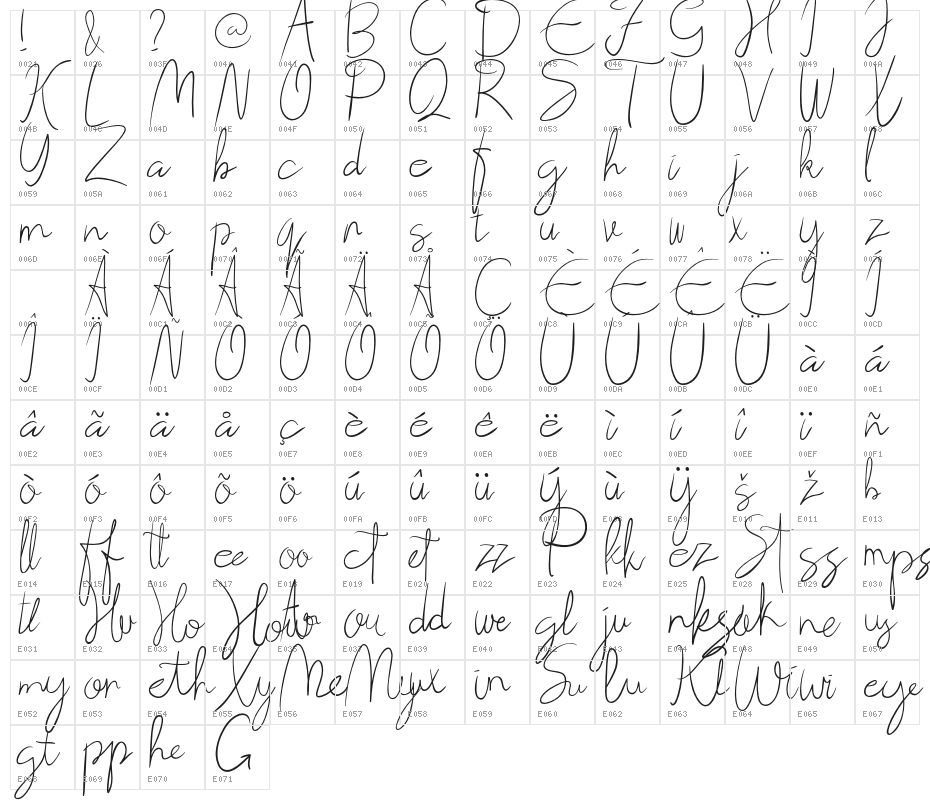 ! & ? @ A B C D E F G H I J
0021 0026 003F 0040 0041 0042 0043 0044 0045 0046 0047 0048 0049 004A
K L M N O P Q R S T U V W X
004B 004C 004D 004E 004F 0050 0051 0052 0053 0054 0055 0056 0057 0058
Y Z a b c d e f g h i j k l
0059 005A 0061 0062 0063 0064 0065 0066 0067 0068 0069 006A 006B 006C
m n o p q r s t u v w x y z
006D 006E 006F 0070 0071 0072 0073 0074 0075 0076 0077 0078 0079 007A
À Á Â Ã Ä Å Ç È É Ê Ë Ì Í
00A0 00C0 00C1 00C2 00C3 00C4 00C5 00C7 00C8 00C9 00CA 00CB 00CC 00CD
Î Ï Ñ Ò Ó Ô Õ Ö Ù Ú Û Ü à á
00CE 00CF 00D1 00D2 00D3 00D4 00D5 00D6 00D9 00DA 00DB 00DC 00E0 00E1
â ã ä å ç è é ê ë ì í î ï ñ
00E2 00E3 00E4 00E5 00E7 00E8 00E9 00EA 00EB 00EC 00ED 00EE 00EF 00F1
ò ó ô õ ö ú û ü ý ù ÿ š ž b
00F2 00F3 00F4 00F5 00F6 00FA 00FB 00FC 00FD E009 E010 E011 E013
ll ff tt ee oo ct et zz P kk ez St ss mps
E014 E015 E016 E017 E018 E019 E020 E022 E023 E024 E025 E028 E029 E030
tl Hu Ho How to ou dd we gl ju nks ook ne us
E031 E032 E033 E034 E035 E037 E039 E040 E043 E044 E048 E049 E050
my on eth Xy Me My ux in Su lu Ke Wi wi eye
E052 E053 E054 E055 E056 E057 E058 E059 E060 E062 E063 E064 E065 E067
gt pp he G
E068 E069 E070 E071